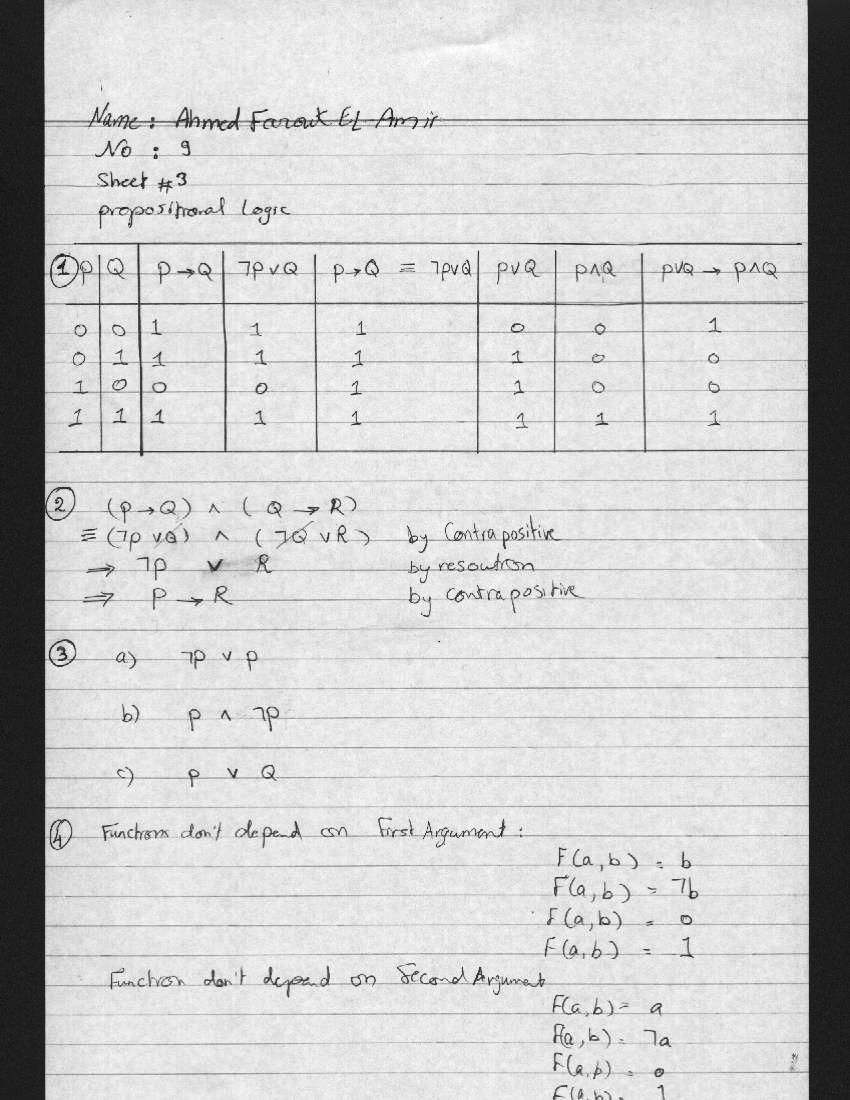 Name : Ahmed Farouk EL-Amir
No : 9
Sheet #3
propositional Logic
① P Q P→Q ¬P∨Q P→Q ≡ ¬P∨Q P∨Q P∧Q P∨Q → P∧Q
0 0 1 1 1 0 0 1
0 1 1 1 1 1 0 0
1 0 0 0 1 1 0 0
1 1 1 1 1 1 1 1
② (P→Q) ∧ (Q → R)
≡ (¬P ∨Q) ∧ (¬Q ∨R) by Contrapositive
⇒ ¬P ∨ R by resoution
⇒ P → R by contrapositive
③ a) ¬P ∨ P
b) P ∧ ¬P
c) P ∨ Q
④ Functions don't depend on First Argument :
F(a,b) = b
F(a,b) = ¬b
F(a,b) = 0
F(a,b) = 1
Function don't depend on Second Argument
F(a,b) = a
F(a,b) = ¬a
F(a,b) = 0
F(a,b) = 1